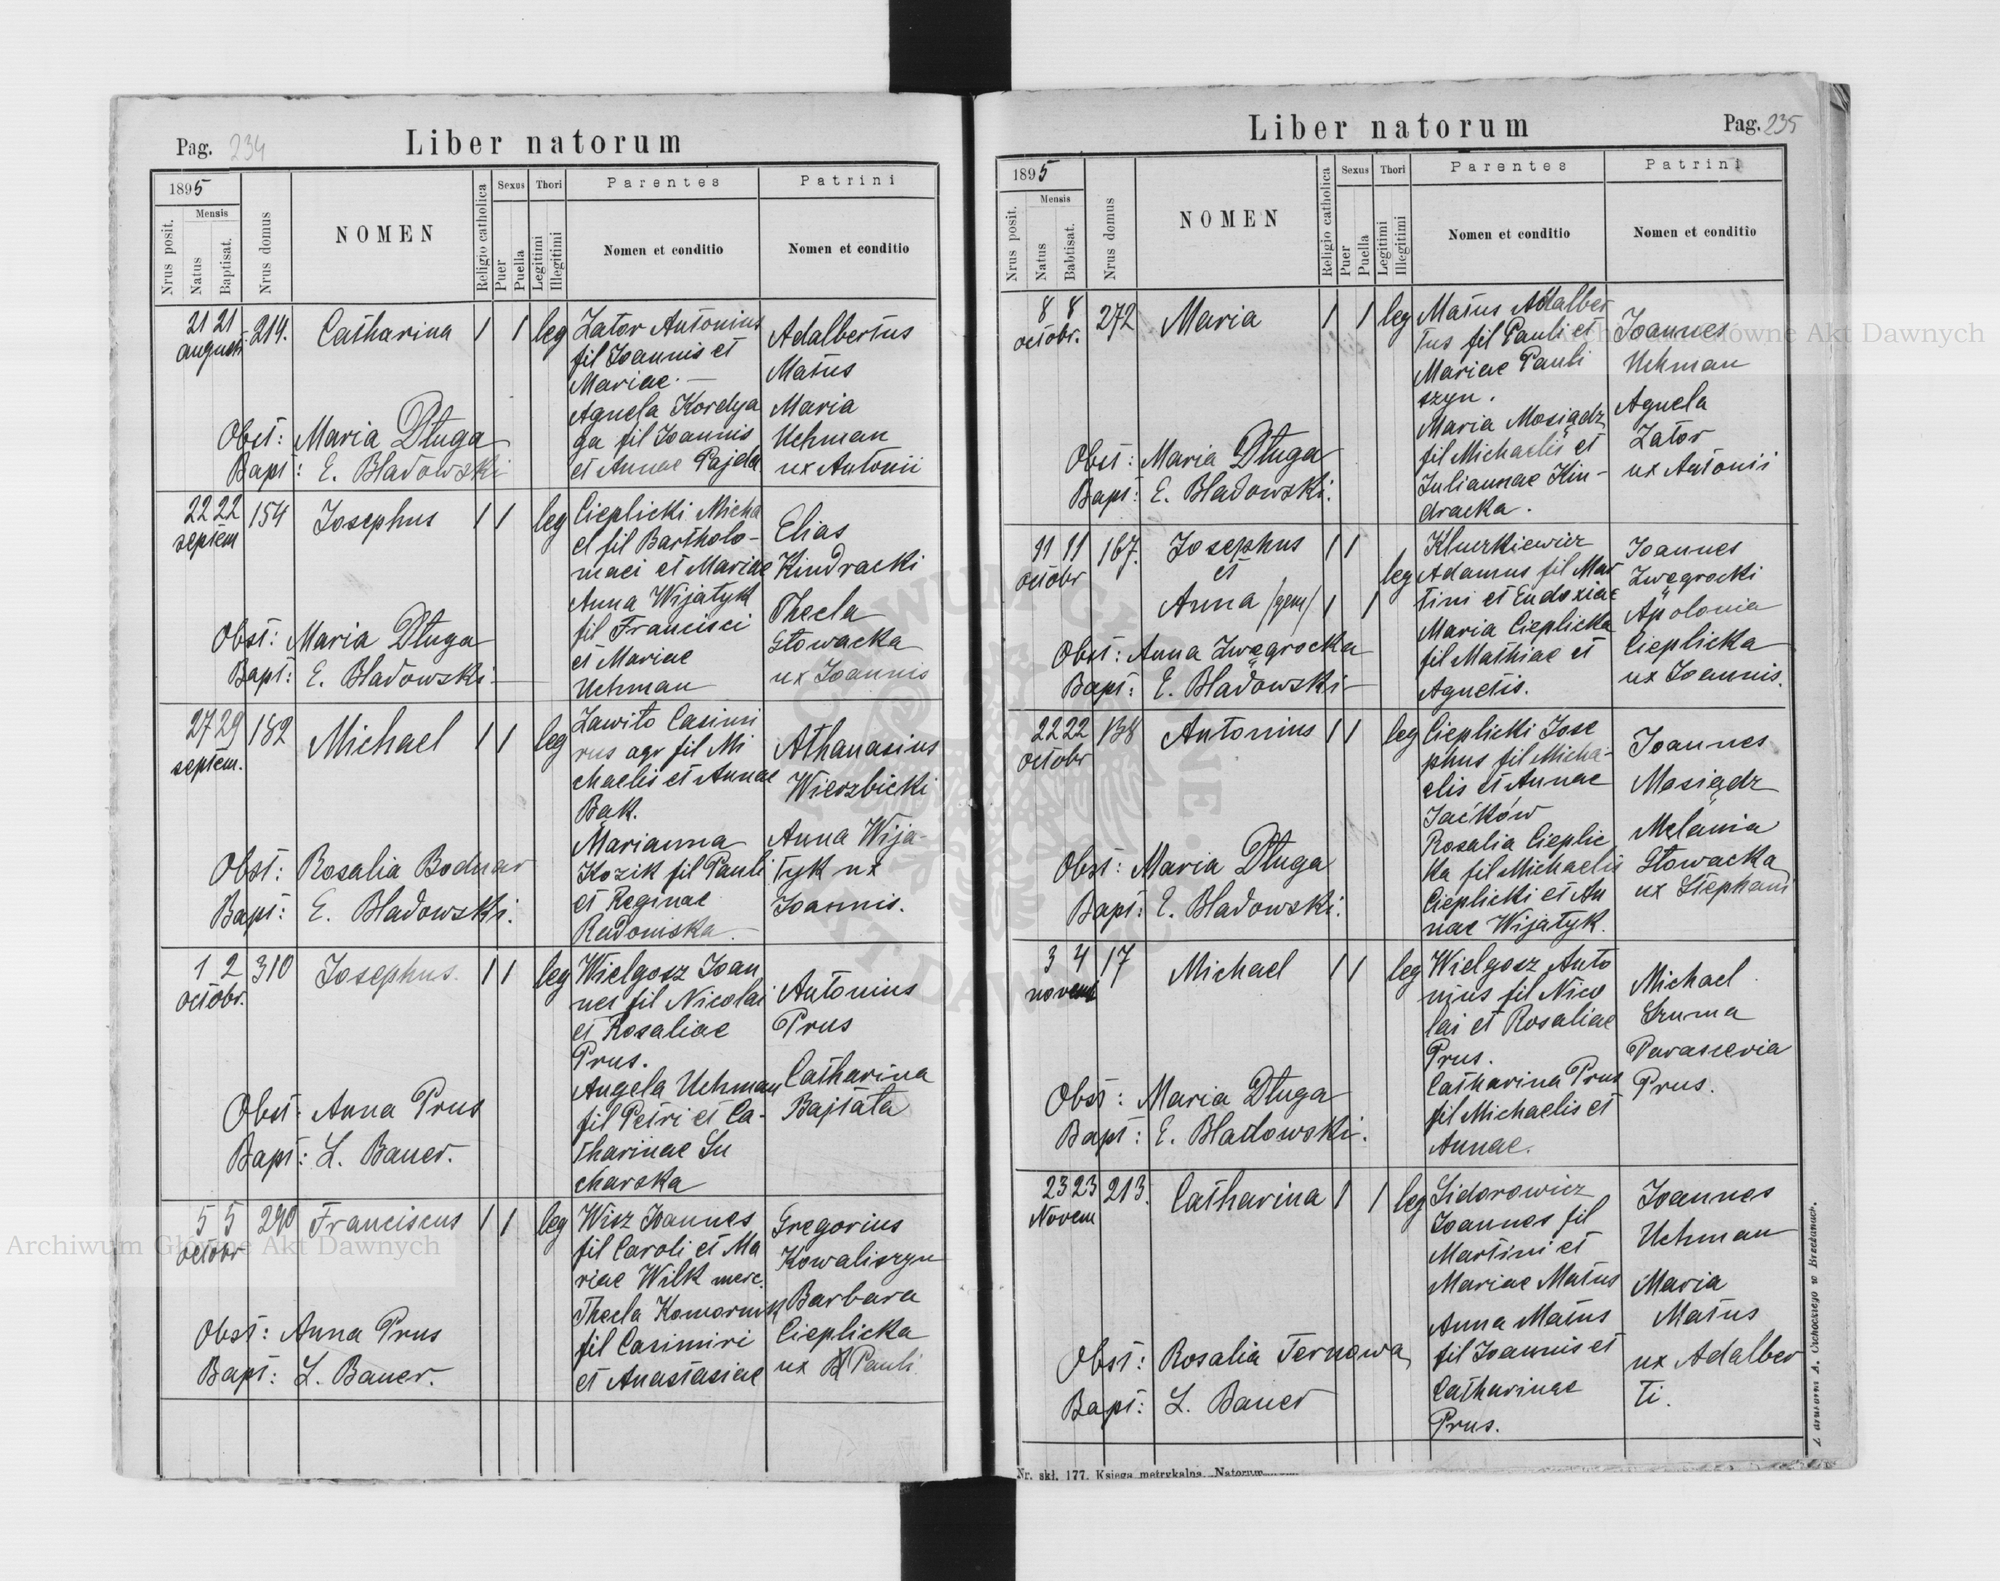 Pag. 234
Liber natorum
1895
Nrus posit.
Mensis
Natus
Baptisat.
Nrus domus
NOMEN
Religio catholica
Sexus
Puer
Puella
Thori
Legitimi
Illegitimi
Parentes
Nomen et conditio
Patrini
Nomen et conditio
21 21 214. Catharina 1 1 leg
augusti
Zator Antonius
fil Joannis et
Mariae. —
Agnela Kordya
ga fil Joannis
et Annae Pajda
Adalbertus
Matus
Maria
Uchman
ux Antonii
Obst: Maria Długa
Bapt: E. Bladowski
22 22 154 Josephus 1 1 leg
septem
Cieplicki Micha
el fil Bartholo-
maei et Mariae
Anna Wijatyk
fil Francisci
et Mariae
Uchman
Elias
Kindracki
Thecla
Głowacka
ux Joannis
Obst: Maria Długa
Bapt: E. Bladowski
27 29 182 Michael 1 1 leg
septem.
Zawito Casimi
rus agr fil Mi
chaelis et Annae
Bąk.
Marianna
Kozik fil Pauli
et Reginae
Radomska
Athanasius
Wierzbicki
Anna Wija-
tyk ux
Joannis.
Obst: Rosalia Bodnar
Bapt: E. Bladowski.
1 2 310 Josephus. 1 1 leg
octobr.
Wielgosz Joan
nes fil Nicolai
et Rosaliae
Prus.
Angela Uchman
fil Petri et Ca-
tharinae Su
charska
Antonius
Prus
Catharina
Bajtała
Obst: Anna Prus
Bapt: L. Bauer.
5 5 290 Franciscus 1 1 leg
octobr
Wisz Joannes
fil Caroli et Ma
riae Wilk merc.
Thecla Komornik
fil Casimiri
et Anastasiae
Gregorius
Kowaliszyn
Barbara
Cieplicka
ux Pauli
Obst: Anna Prus
Bapt: L. Bauer.
Liber natorum
Pag. 235
1895
Nrus posit.
Mensis
Natus
Babtisat.
Nrus domus
NOMEN
Religio catholica
Sexus
Puer
Puella
Thori
Legitimi
Illegitimi
Parentes
Nomen et conditio
Patrini
Nomen et conditio
8 8 272 Maria 1 1 leg
octobr.
Matus Adalber
tus fil Pauli et
Mariae Pauli
szyn.
Maria Mosiądz
fil Michaelis et
Juliannae Kin-
dracka.
Joannes
Uchman
Agnela
Zator
ux Antonii
Obst: Maria Długa
Bapt: E. Bladowski.
11 11 167. Josephus 1 1
octobr
et
Anna /gem/ 1 1
leg
Kluczkiewicz
Adamus fil Mar
tini et Eudoxiae
Maria Cieplicka
fil Mathiae et
Agnetis.
Joannes
Zwęgrocki
Apolonia
Cieplicka
ux Joannis.
Obst: Anna Zwęgrocka
Bapt: E. Bladowski
22 22 138 Antonius 1 1 leg
octobr
Cieplicki Jose
phus fil Micha-
elis et Annae
Jaćków
Rosalia Cieplic
ka fil Michaelis
Cieplicki et An
nae Wijatyk.
Joannes
Mosiądz
Melania
Głowacka
ux Stephani
Obst: Maria Długa
Bapt: E. Bladowski.
3 4 17 Michael 1 1 leg
novem
Wielgosz Anto
nius fil Nico
lai et Rosaliae
Prus.
Catharina Prus
fil Michaelis et
Annae.
Michael
Szuma
Parascevia
Prus.
Obst: Maria Długa
Bapt: E. Bladowski.
23 23 213. Catharina 1 1 leg
Novem
Sidorowicz
Joannes fil
Martini et
Mariae Matus
Anna Matus
fil Joannis et
Catharinae
Prus.
Joannes
Uchman
Maria
Matus
ux Adalber
ti.
Obst: Rosalia Ternowa
Bapt: L. Bauer
Nr. skł. 177. Księga metrykalna. Natorum
Archiwum Główne Akt Dawnych
Archiwum Główne Akt Dawnych